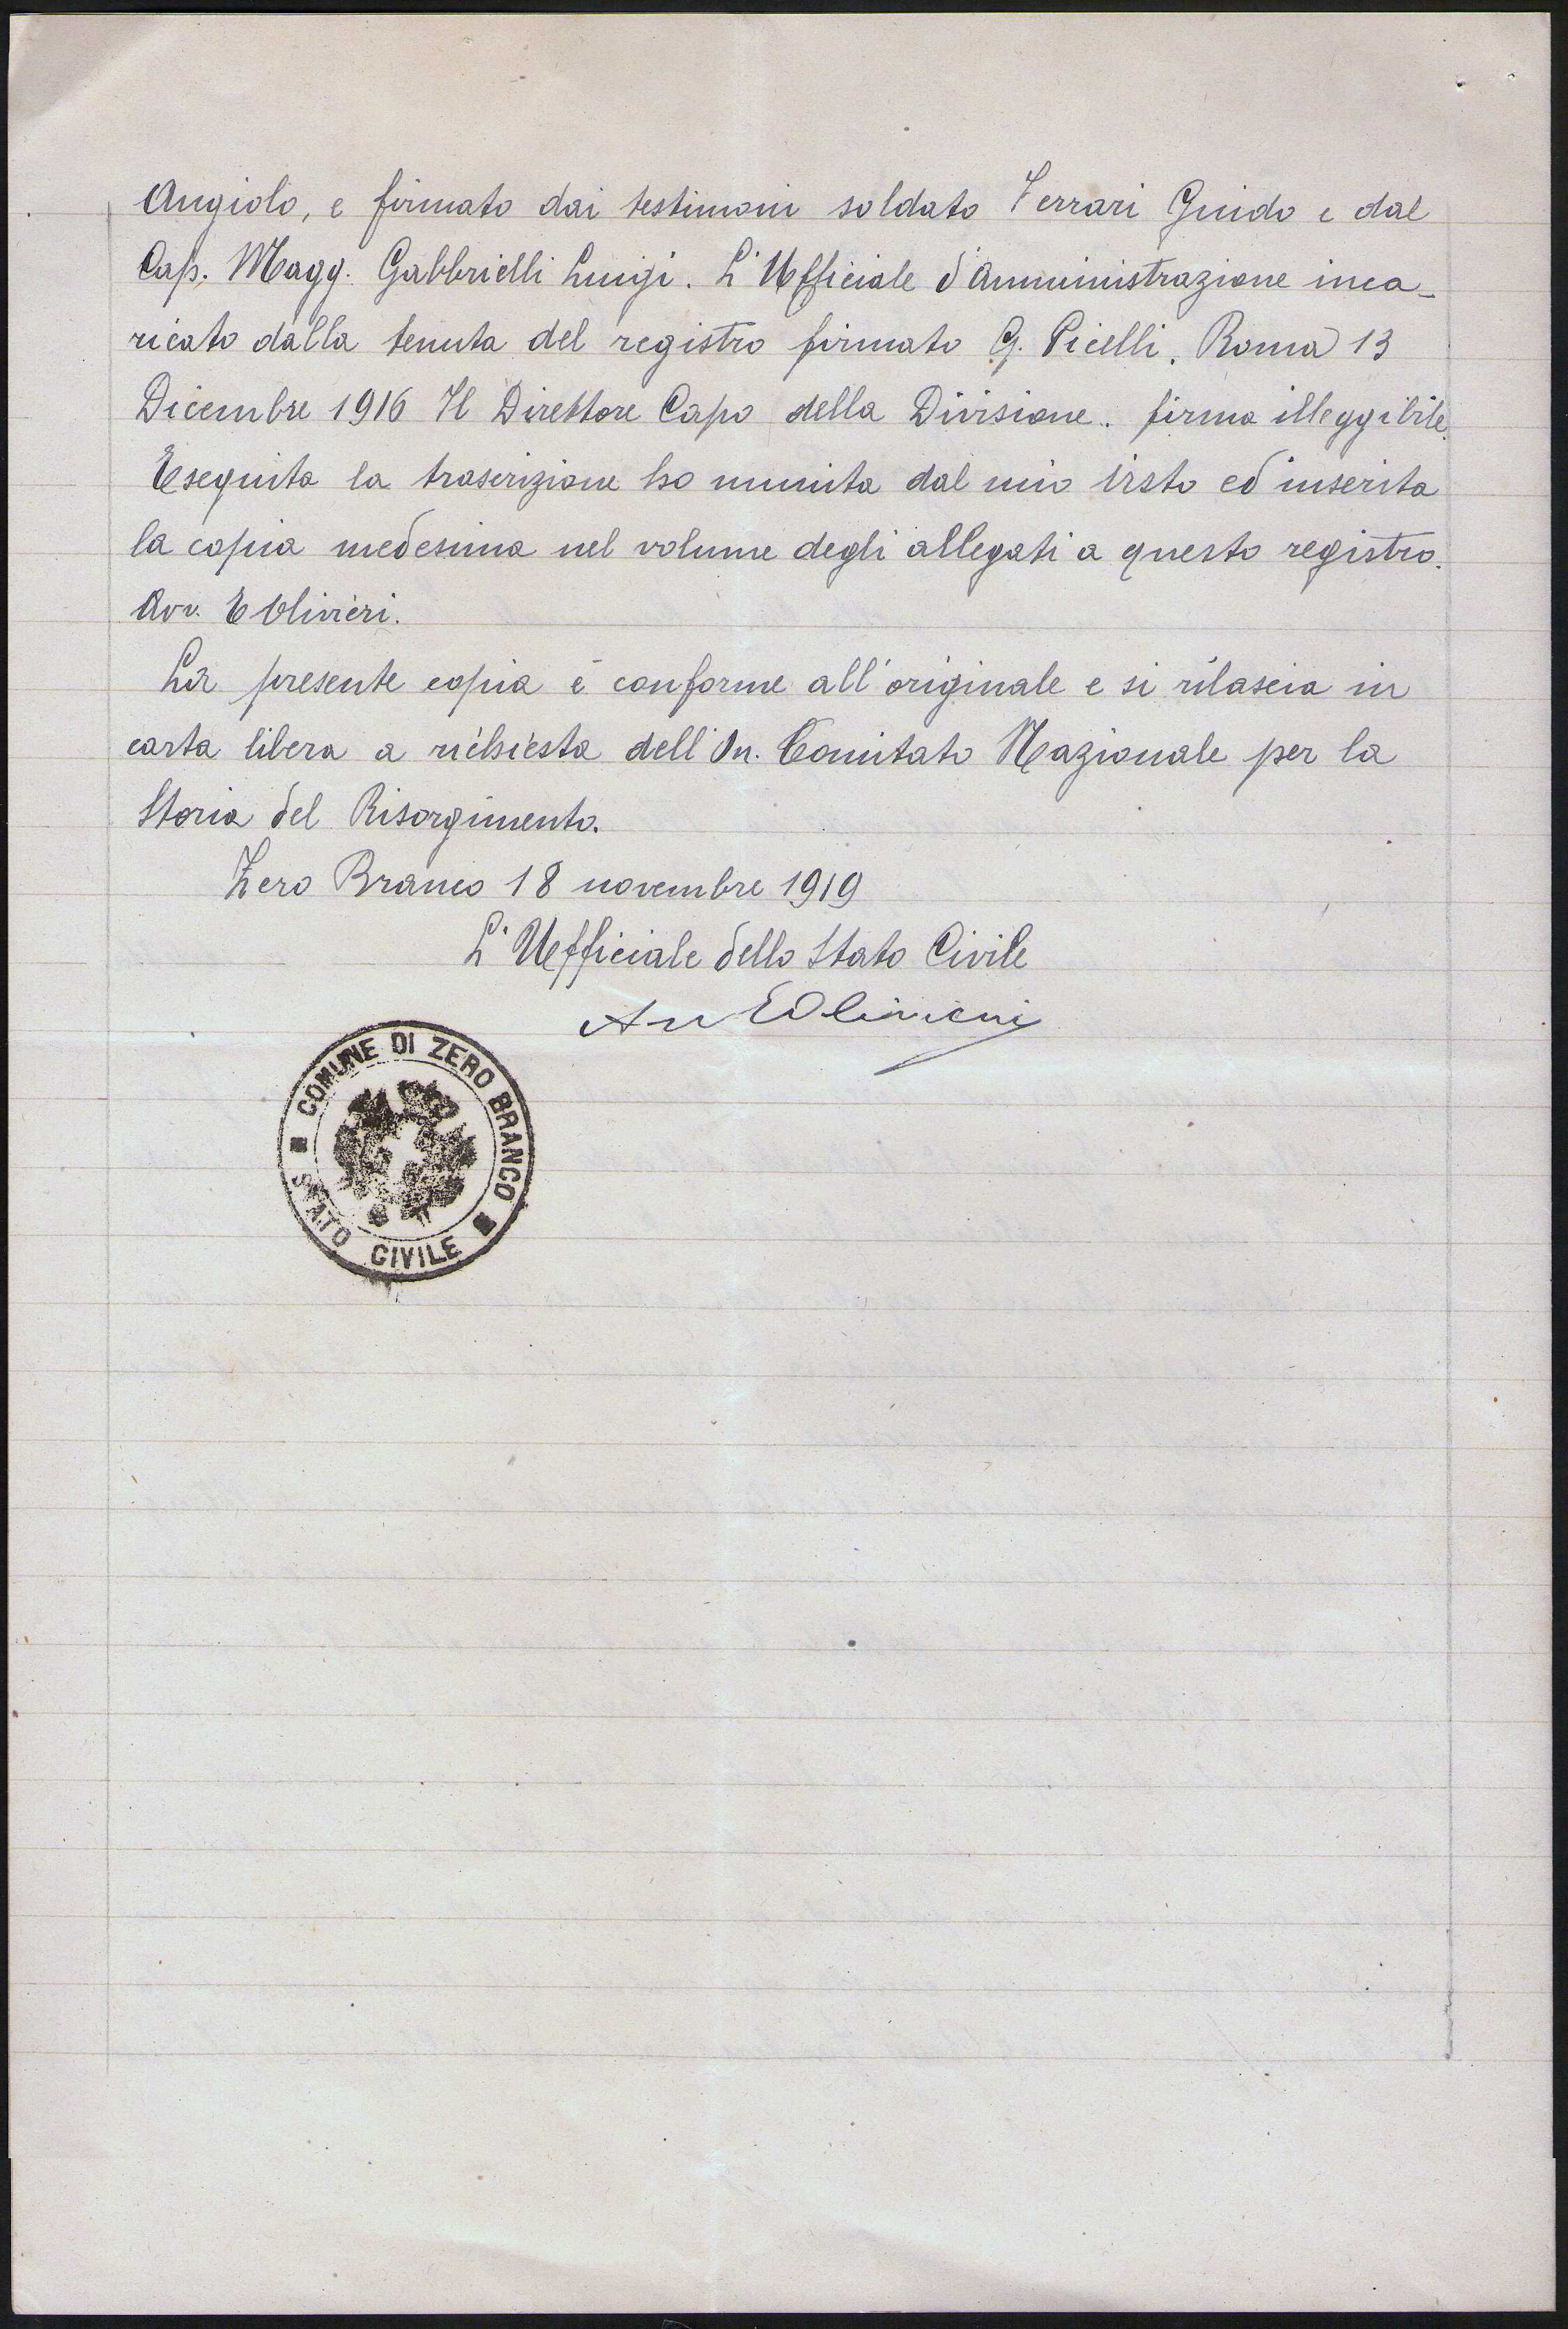 Angiolo, e firmato dai testimoni soldato Ferrari Guido e dal
Cap. Magg. Gabbrielli Luigi. L'Ufficiale d'Amministrazione inca-
ricato dalla tenuta del registro firmato G. Picelli. Roma 13
Dicembre 1916 Il Direttore Capo della Divisione.. firma illeggibile.
Eseguita la trascrizione ho munita dal mio visto ed inserita
la copia medesima nel volume degli allegati a questo registro.
Avv. E Olivieri.
La presente copia è conforme all'originale e si rilascia in
carta libera a richiesta dell'On. Comitato Nazionale per la
Storia del Risorgimento.
Zero Branco 18 novembre 1919
L'Ufficiale dello Stato Civile
Avv E Olivieri
COMUNE DI ZERO BRANCO
STATO CIVILE